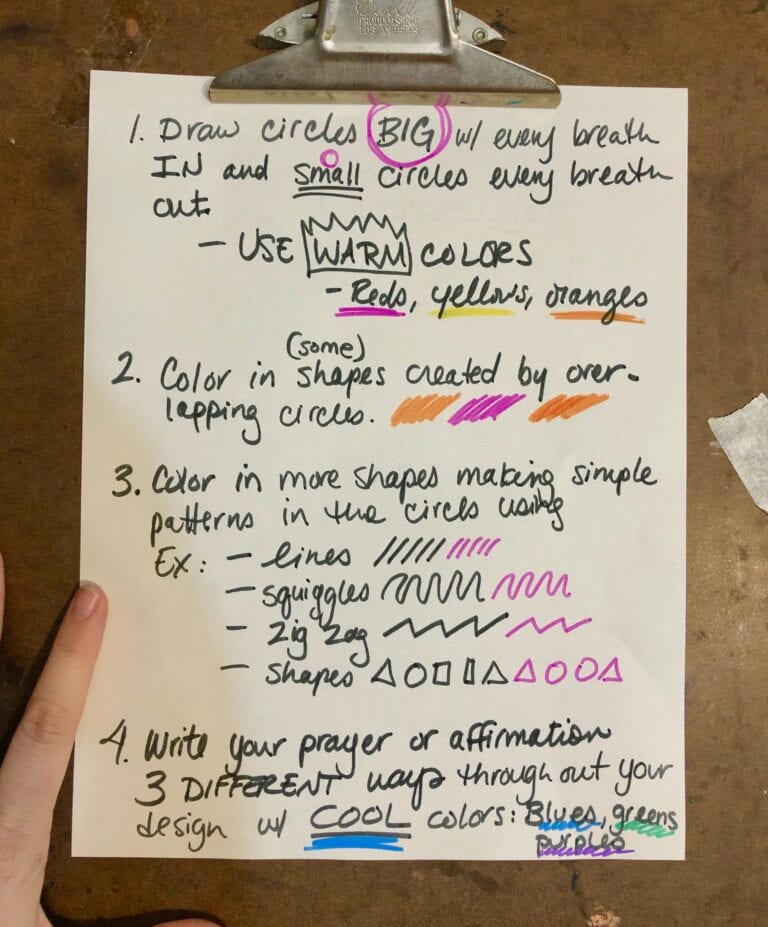 PRODUCTS INC
LOS ANGELES
1. Draw circles BIG w/ every breath
IN and small circles every breath
out
- USE WARM COLORS
- Reds, yellows, oranges
(some)
2. Color in shapes created by over-
lapping circles.
3. Color in more shapes making simple
patterns in the circles using
Ex: - lines
- squiggles
- zig zag
- shapes
4. Write your prayer or affirmation
3 DIFFERENT ways through out your
design w/ COOL colors: Blues, greens
purples